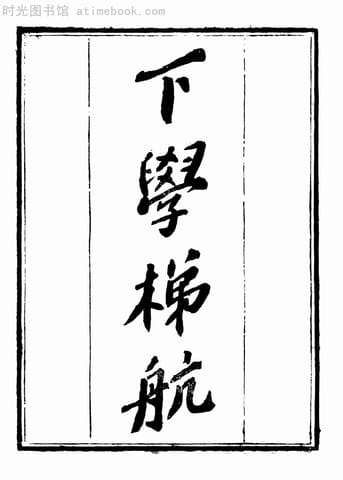 时光图书馆 atimebook.com
下學梯航